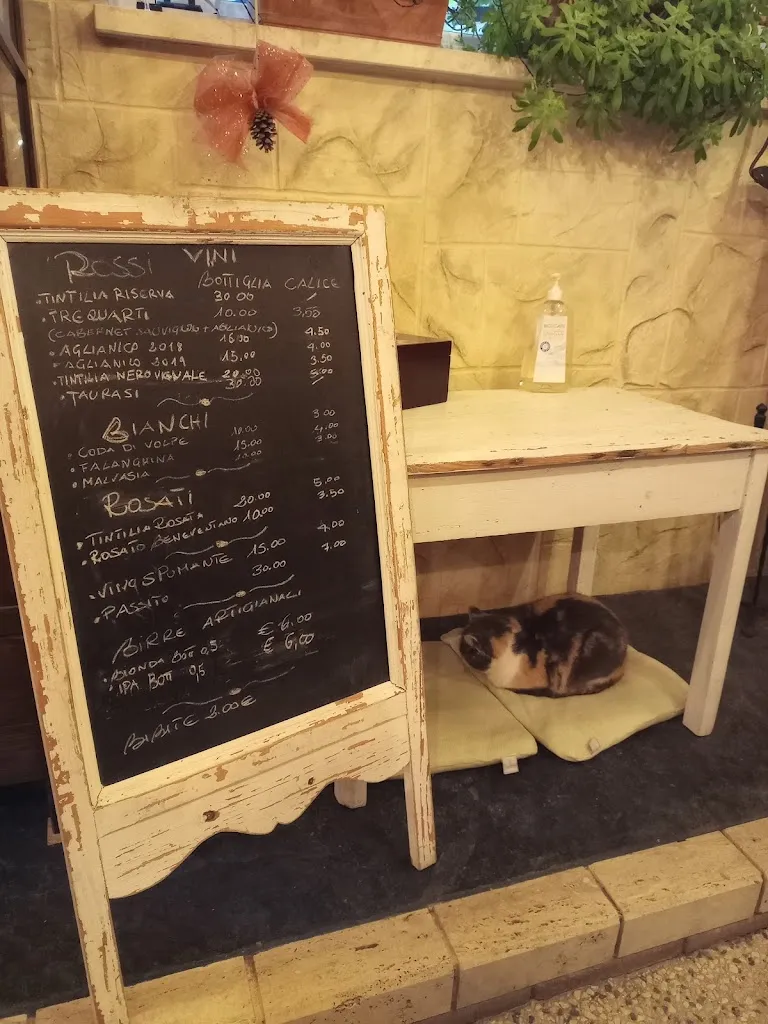 VINI
ROSSI BOTTIGLIA CALICE
• TINTILIA RISERVA 30.00 /
• TREQUARTI 10.00 3,00
(CABERNET SAUVIGNON + AGLIANICO)
• AGLIANICO 2018 16.00 4.50
• AGLIANICO 2019 15.00 4.00
• TINTILIA NEROVIGUALE 20.00 3.50
• TAURASI 30.00 /
BIANCHI
• CODA DI VOLPE 10.00 3.00
• FALANGHINA 15.00 4.00
• MALVASIA 3.00
ROSATI
• TINTILIA ROSATA 20.00 5.00
• ROSATO BENEVENTANO 10.00 3.50
• VINO SPUMANTE 15.00 4.00
• PASSITO 30.00 7.00
BIRRE ARTIGIANALI
• BIONDA BOTT 0,5 € 6.00
• IPA BOTT 0,5 € 6,00
BIBITE 2.00€